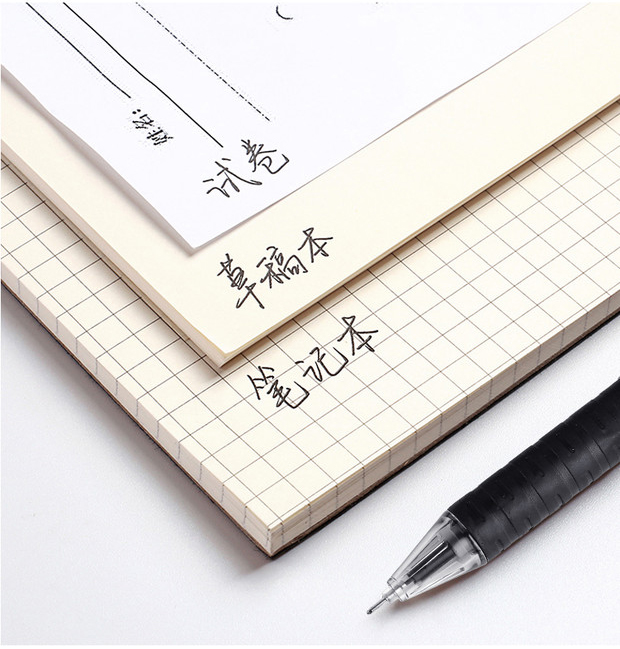 姓名：
试卷
草稿本
笔记本